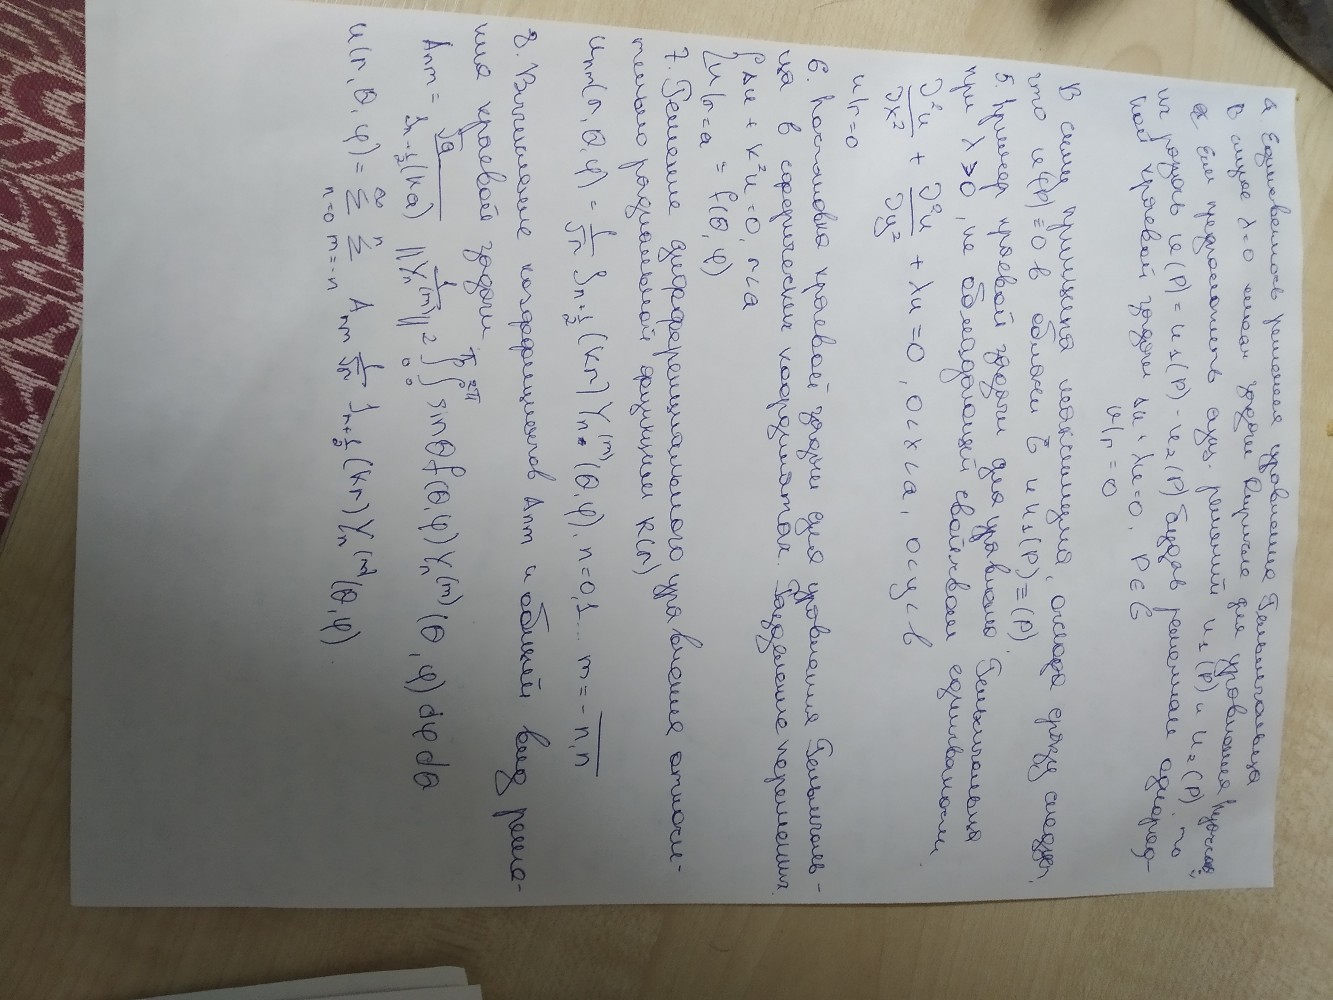 4. Единственность решения уравнения Гельмгольца
В случае λ=0 имеем задачу Дирихле для уравнения Пуассона
Если предположить сущ. решений u₁(P) и u₂(P) то
их разность u(P) = u₁(P) - u₂(P) будет решением однород-
ной краевой задачи Δu + λu=0, P ∈ G
u|Γ = 0
В силу принципа максимума, отсюда сразу следует,
что u(P) ≡ 0 в области G и u₁(P) ≡ (P)
5. Пример краевой задачи для уравнения Гельмгольца
при λ>0, не обладающей свойством единственности
∂²u/∂x² + ∂²u/∂y² + λu = 0, 0<x<a, 0<y<b
u|Γ=0
6. Постановка краевой задачи для уравнения Гельмголь-
ца в сферических координатах. Разделение переменных.
{ Δu + k²u = 0, r<a
{ u|r=a = f(θ,φ)
7. Решение дифференциального уравнения относи-
тельно радиальной функции R(r)
Unm(r,θ,φ) = 1/√r Jn+1/2(kr) Yn^(m)(θ,φ), n=0,1... m=-n,n
8. Вычисление коэффициентов Anm и общий вид реше-
ния краевой задачи.
Anm = √a/Jn+1/2(ka) 1/||Yn^(m)||² ∫₀^π ∫₀^2π sinθ f(θ,φ) Yn^(m)(θ,φ) dφ dθ
u(r,θ,φ) = Σ n=0 ∞ Σ m=-n n Anm 1/√r Jn+1/2(kr) Yn^(m)(θ,φ)